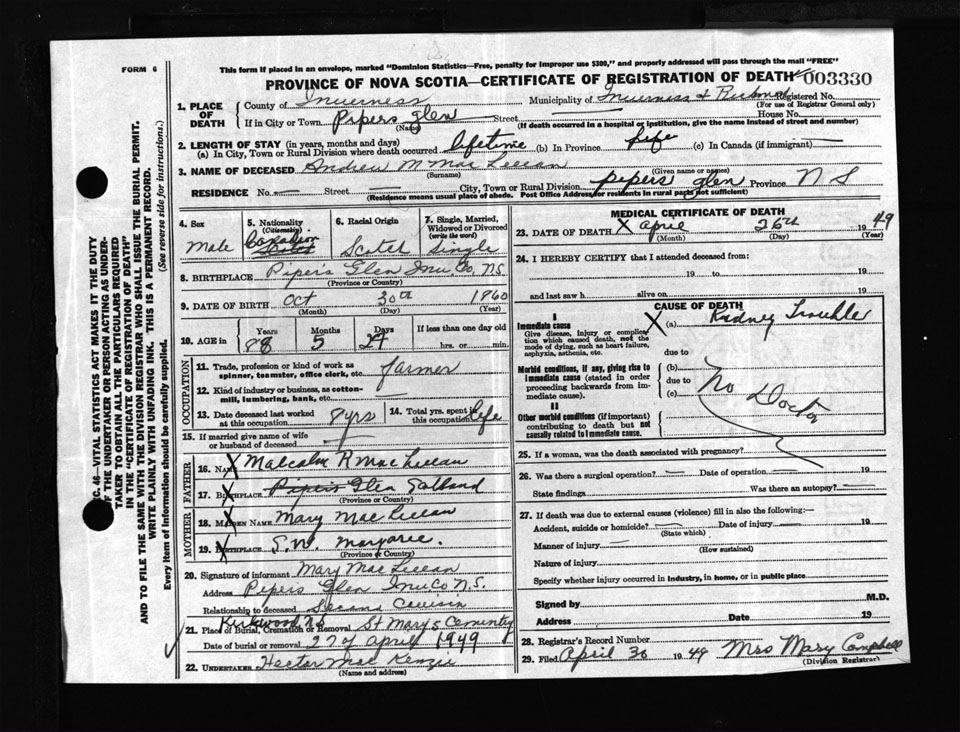 FORM 6
This form if placed in an envelope, marked "Dominion Statistics—Free, penalty for improper use $300," and properly addressed will pass through the mail "FREE"
PROVINCE OF NOVA SCOTIA—CERTIFICATE OF REGISTRATION OF DEATH 003330
1. PLACE OF DEATH County of Inverness Municipality of Inverness & Registered No.
(For use of Registrar General only)
If in City or Town Pipers Glen Street House No.
(Name) (If death occurred in a hospital or institution, give the name instead of street and number)
2. LENGTH OF STAY (in years, months and days)
(a) In City, Town or Rural Division where death occurred lifetime (b) In Province life (c) In Canada (if immigrant) —
3. NAME OF DECEASED Andrew M MacLellan
(Surname) (Given name or names)
RESIDENCE No. — Street — City, Town or Rural Division pipers glen Province N S
(Residence means usual place of abode. Post Office Address for residents in rural parts not sufficient)
4. Sex Male
5. Nationality (Citizenship) Canadian
6. Racial Origin Scotch
7. Single, Married, Widowed or Divorced (write the word) Single
8. BIRTHPLACE Piper's Glen Inv. Co, N.S.
(Province or Country)
9. DATE OF BIRTH Oct 30th 1860
(Month) (Day) (Year)
10. AGE in Years 88 Months 5 Days 24 If less than one day old hrs. or min.
OCCUPATION
11. Trade, profession or kind of work as spinner, teamster, office clerk, etc. farmer
12. Kind of industry or business, as cotton-mill, lumbering, bank, etc.
13. Date deceased last worked at this occupation 8 yrs
14. Total yrs. spent in this occupation Life
15. If married give name of wife or husband of deceased —
FATHER
16. NAME X Malcolm R MacLellan
17. BIRTHPLACE X Pipers Glen
(Province or Country)
MOTHER
18. MAIDEN NAME X Mary MacLellan
19. BIRTHPLACE X S.W. Margaree.
(Province or Country)
20. Signature of informant Mary MacLellan
Address Pipers Glen Inv. Co N.S.
Relationship to deceased Second Cousin
Kirkwood, N.S.
21. Place of Burial, Cremation or Removal St Mary's Cemintry
Date of burial or removal 27 of April 1949
22. UNDERTAKER Hector MacKenzie
(Name and address)
MEDICAL CERTIFICATE OF DEATH
23. DATE OF DEATH X April 26th 1949
(Month) (Day) (Year)
24. I HEREBY CERTIFY that I attended deceased from:
19 to 19
and last saw h alive on 19
CAUSE OF DEATH
I
Immediate cause
Give disease, injury or complication which caused death, not the mode of dying, such as heart failure, asphyxia, asthenia, etc.
X (a) Kidney Trouble
due to
Morbid conditions, if any, giving rise to immediate cause (stated in order proceeding backwards from immediate cause).
(b)
due to
(c)
No Doctor
II
Other morbid conditions (if important) contributing to death but not causally related to immediate cause.
25. If a woman, was the death associated with pregnancy?
26. Was there a surgical operation? — Date of operation — 19
State findings Was there an autopsy? —
27. If death was due to external causes (violence) fill in also the following:—
Accident, suicide or homicide? — Date of injury — 19
(State which)
Manner of injury —
(How sustained)
Nature of injury
Specify whether injury occurred in industry, in home, or in public place
Signed by M.D.
Address Date 19
28. Registrar's Record Number
29. Filed April 30 1949 Mrs Mary Campbell
(Division Registrar)
SEC. 46—VITAL STATISTICS ACT MAKES IT THE DUTY
OF THE UNDERTAKER OR PERSON ACTING AS UNDER-
TAKER TO OBTAIN ALL THE PARTICULARS REQUIRED
IN THE "CERTIFICATE OF REGISTRATION OF DEATH"
AND TO FILE THE SAME WITH THE DIVISION REGISTRAR WHO SHALL ISSUE THE BURIAL PERMIT.
WRITE PLAINLY WITH UNFADING INK. THIS IS A PERMANENT RECORD.
Every item of information should be carefully supplied. (See reverse side for instructions.)